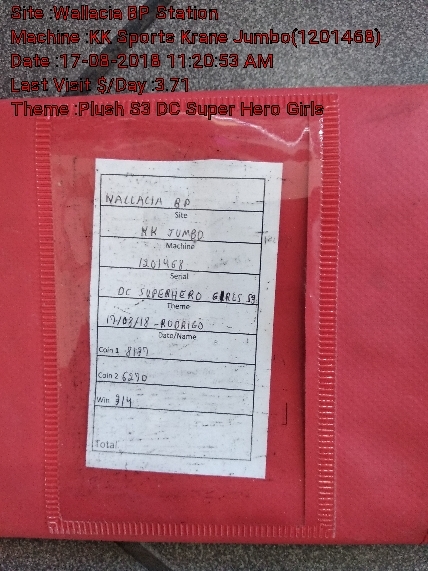 Site :Wallacia BP Station
Machine :KK Sports Krane Jumbo(1201468)
Date :17-08-2018 11:20:53 AM
Last Visit $/Day :3.71
Theme :Plush S3 DC Super Hero Girls
WALLACIA BP
Site
KK JUMBO
Machine
1201468
Serial
DC SUPERHERO GIRLS S3
Theme
17/08/18 - RODRIGO
Date/Name
Coin 1 8197
Coin 2 6290
Win 314
Total